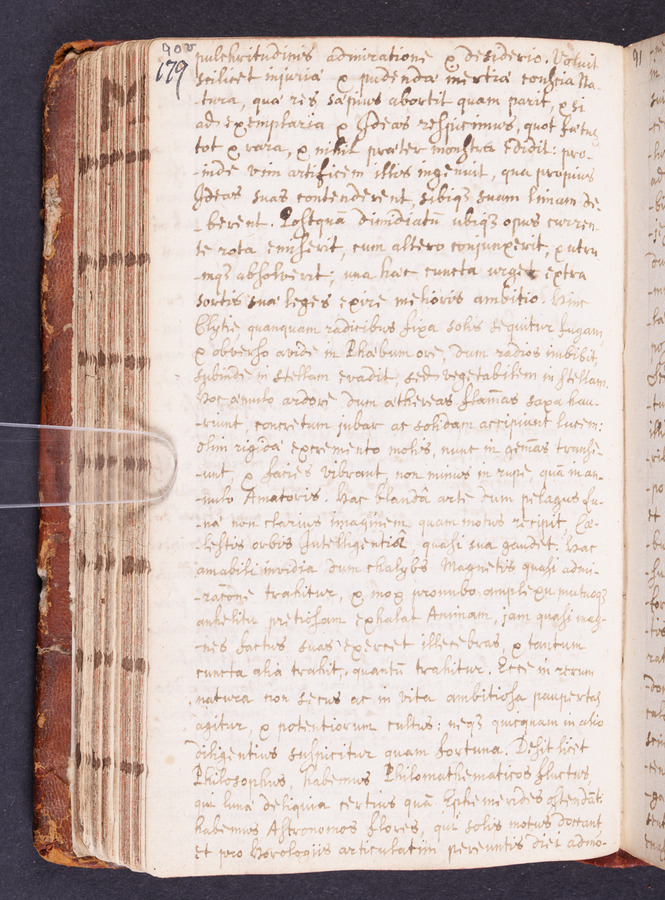 90v
179
pulchritudinis admiratione & desiderio. Voluit
scilicet injuria & pudenda inertia conscia Na-
-tura, qua res sæpius abortit quam parit, & si
ad exemplaria & Ideas respicimus, quot fætus
tot & rara, & nihil præter monstra edidit: pro-
-inde vim artificem illis ingenuit, qua propius
Ideas suas contenderent, sibiqꝫ suam limam de-
-berent. Postquã dimidiatũ ubiqꝫ opus curren-
te rota emiserit, cum altero conjunxerit, & utrũ
-mqꝫ absolverit; una hæc cuncta urget extra
sortis suæ leges exire melioris ambitio. Hinc
Clytie quanquam radicibus fixa solis sequitur fugam,
& obverso avide in Phœbum ore, dum radios imbibit,
subinde in stellam evadit, sed vegetabilem in stellam.
Hoc æmulo ardore dum æthereas flam̃as saxa hau-
-riunt, concretum jubar ac solidam accipiunt lucem:
olim rigida excremento molis, nunc in gem̃as transe-
-unt & facies vibrant, non minus in rupe, quã in an-
-nulo Amatoris. Hac blanda arte dum pelagus Lu-
-næ non clarius imaginem quam motus recipit, Cœ-
-lestis orbis Intelligentiâ, quasi sua gaudet. Hac
amabili invidia dum chalybs Magnetis quasi admi-
-racõne trahitur, & mox pronubo amplexu mutuoqꝫ
anhelitu pretiosam exhalat Animam, jam quasi mag-
-nes factus suas exercet illecebras, & tantum
cuncta alia trahit, quantũ trahitur. Ecce in rerum
natura non secus ac in vita ambitiosa paupertas
agitur, & potentiorum cultus: neqꝫ quicquam in alio
diligentius suspicitur quam fortuna. Desit licet
Philosophus, habemus Philomathematicos fluctus,
qui lunæ deliquia certius quã Ephemerides ostendũt:
habemus Astronomos flores, qui solis motus doceant,
et pro Horologiis articulatim pereuntis diei admo-
91